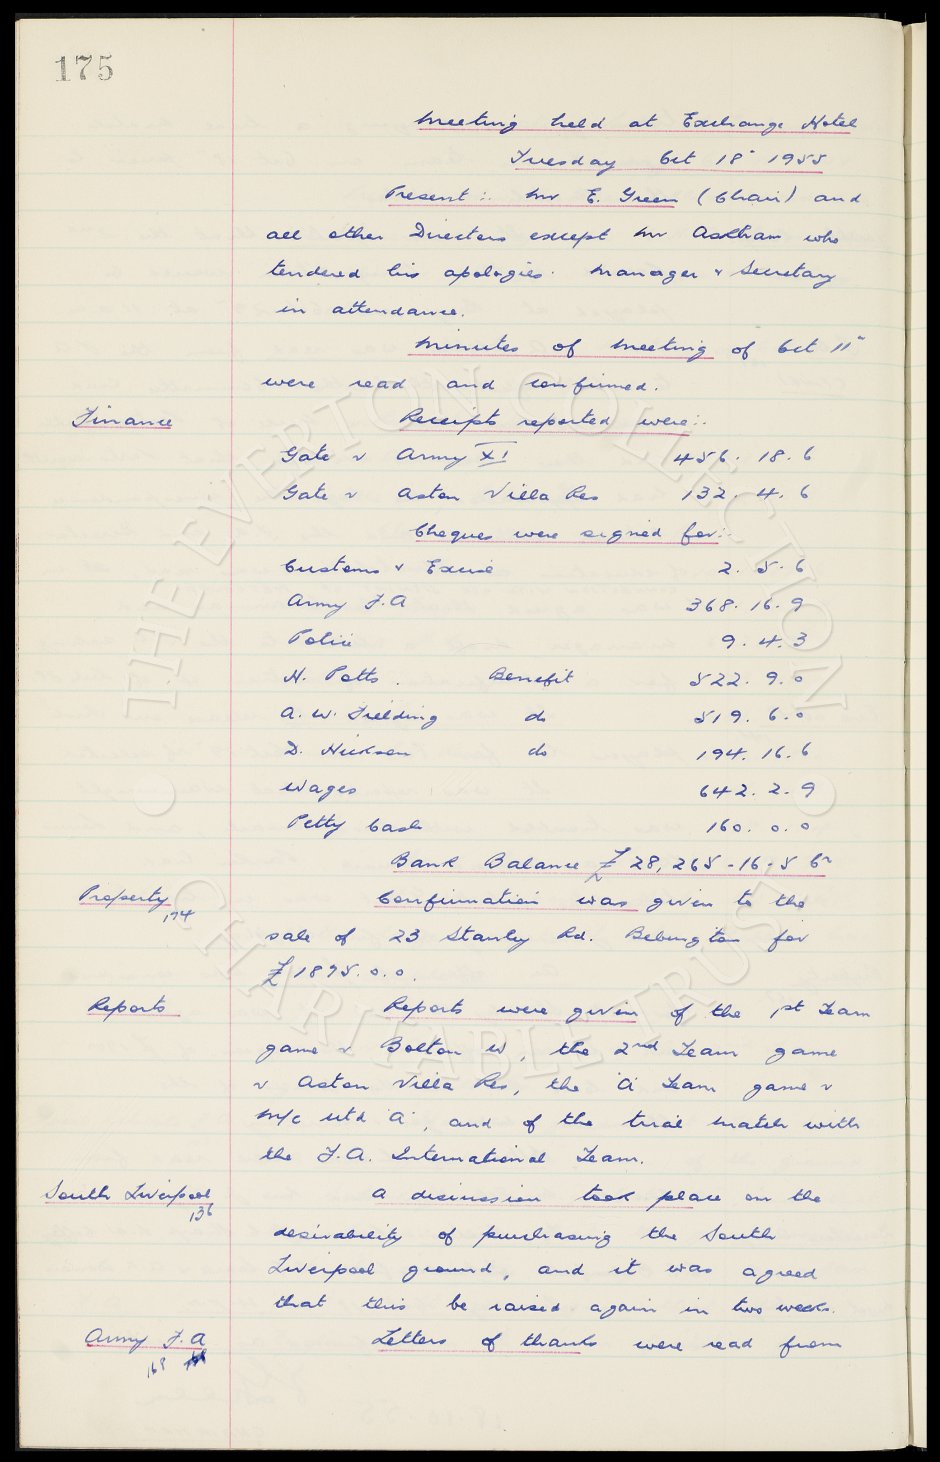 175
Meeting held at Exchange Hotel
Tuesday Oct 18" 1955
Present :. Mr E. Green (Chair) and
all other Directors except Mr Askham who
tendered his apologies. Manager & Secretary
in attendance.
Minutes of Meeting of Oct 11"
were read and confirmed.
Finance
Receipts reported were:.
Gate v Army XI 456. 18. 6
Gate v Aston Villa Res 132. 4. 6
Cheques were signed for:.
Customs & Excise 2. 5. 6
Army F.A 368. 16. 9
Police 9. 4. 3
H. Potts. Benefit 522. 9. 0
A. W. Fielding do 519. 6. 0
D. Hickson do 194. 16. 6
Wages 642. 2. 9
Petty Cash 160. 0. 0
Bank Balance £28,265-16-5 Cr
Property
174
Confirmation was given to the
sale of 23 Stanley Rd. Bebington for
£1895.0.0.
Reports
Reports were given of the 1st Team
game v Bolton W, the 2nd Team game
v Aston Villa Res, the 'A' Team game v
M/c Utd 'A', and of the trial match with
the F.A. International Team.
South Liverpool
136
A discussion took place on the
desirability of purchasing the South
Liverpool ground, and it was agreed
that this be raised again in two weeks.
Army F.A
168
Letters of thanks were read from
© THE EVERTON COLLECTION © CHARITABLE TRUST